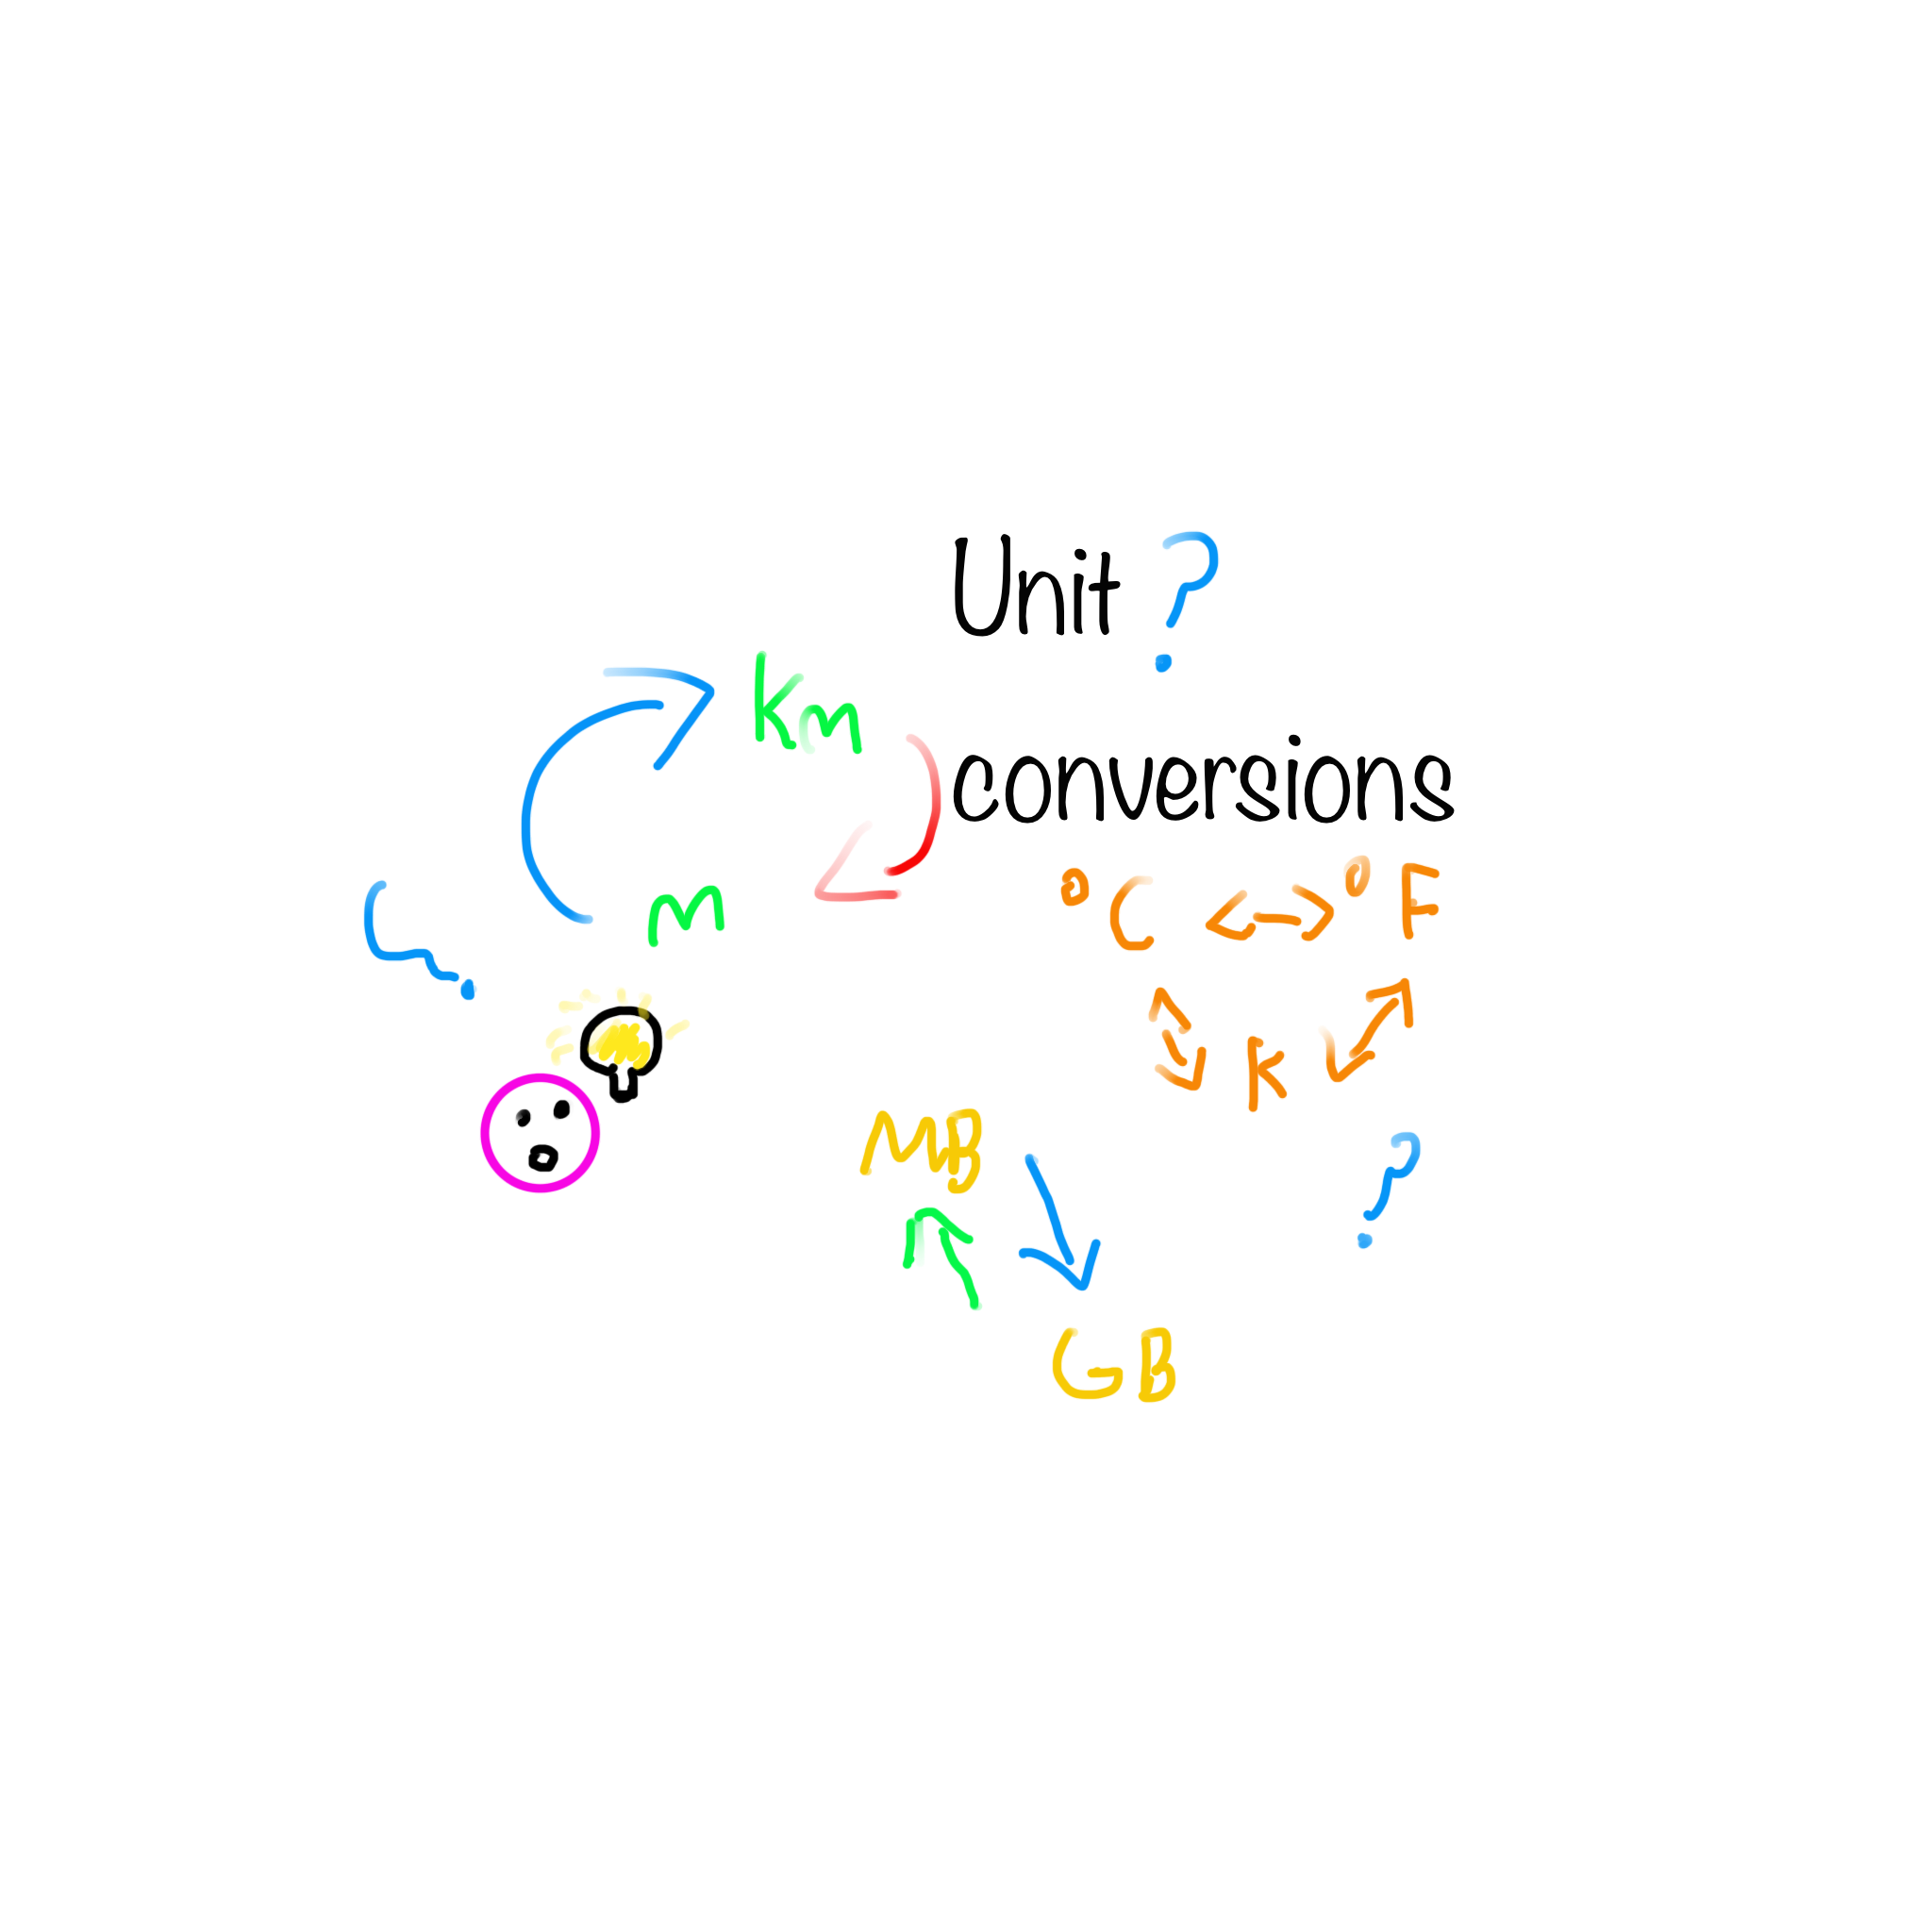 Unit ?
Km
conversions
m
° C ° F
K
?
MB
?
GB